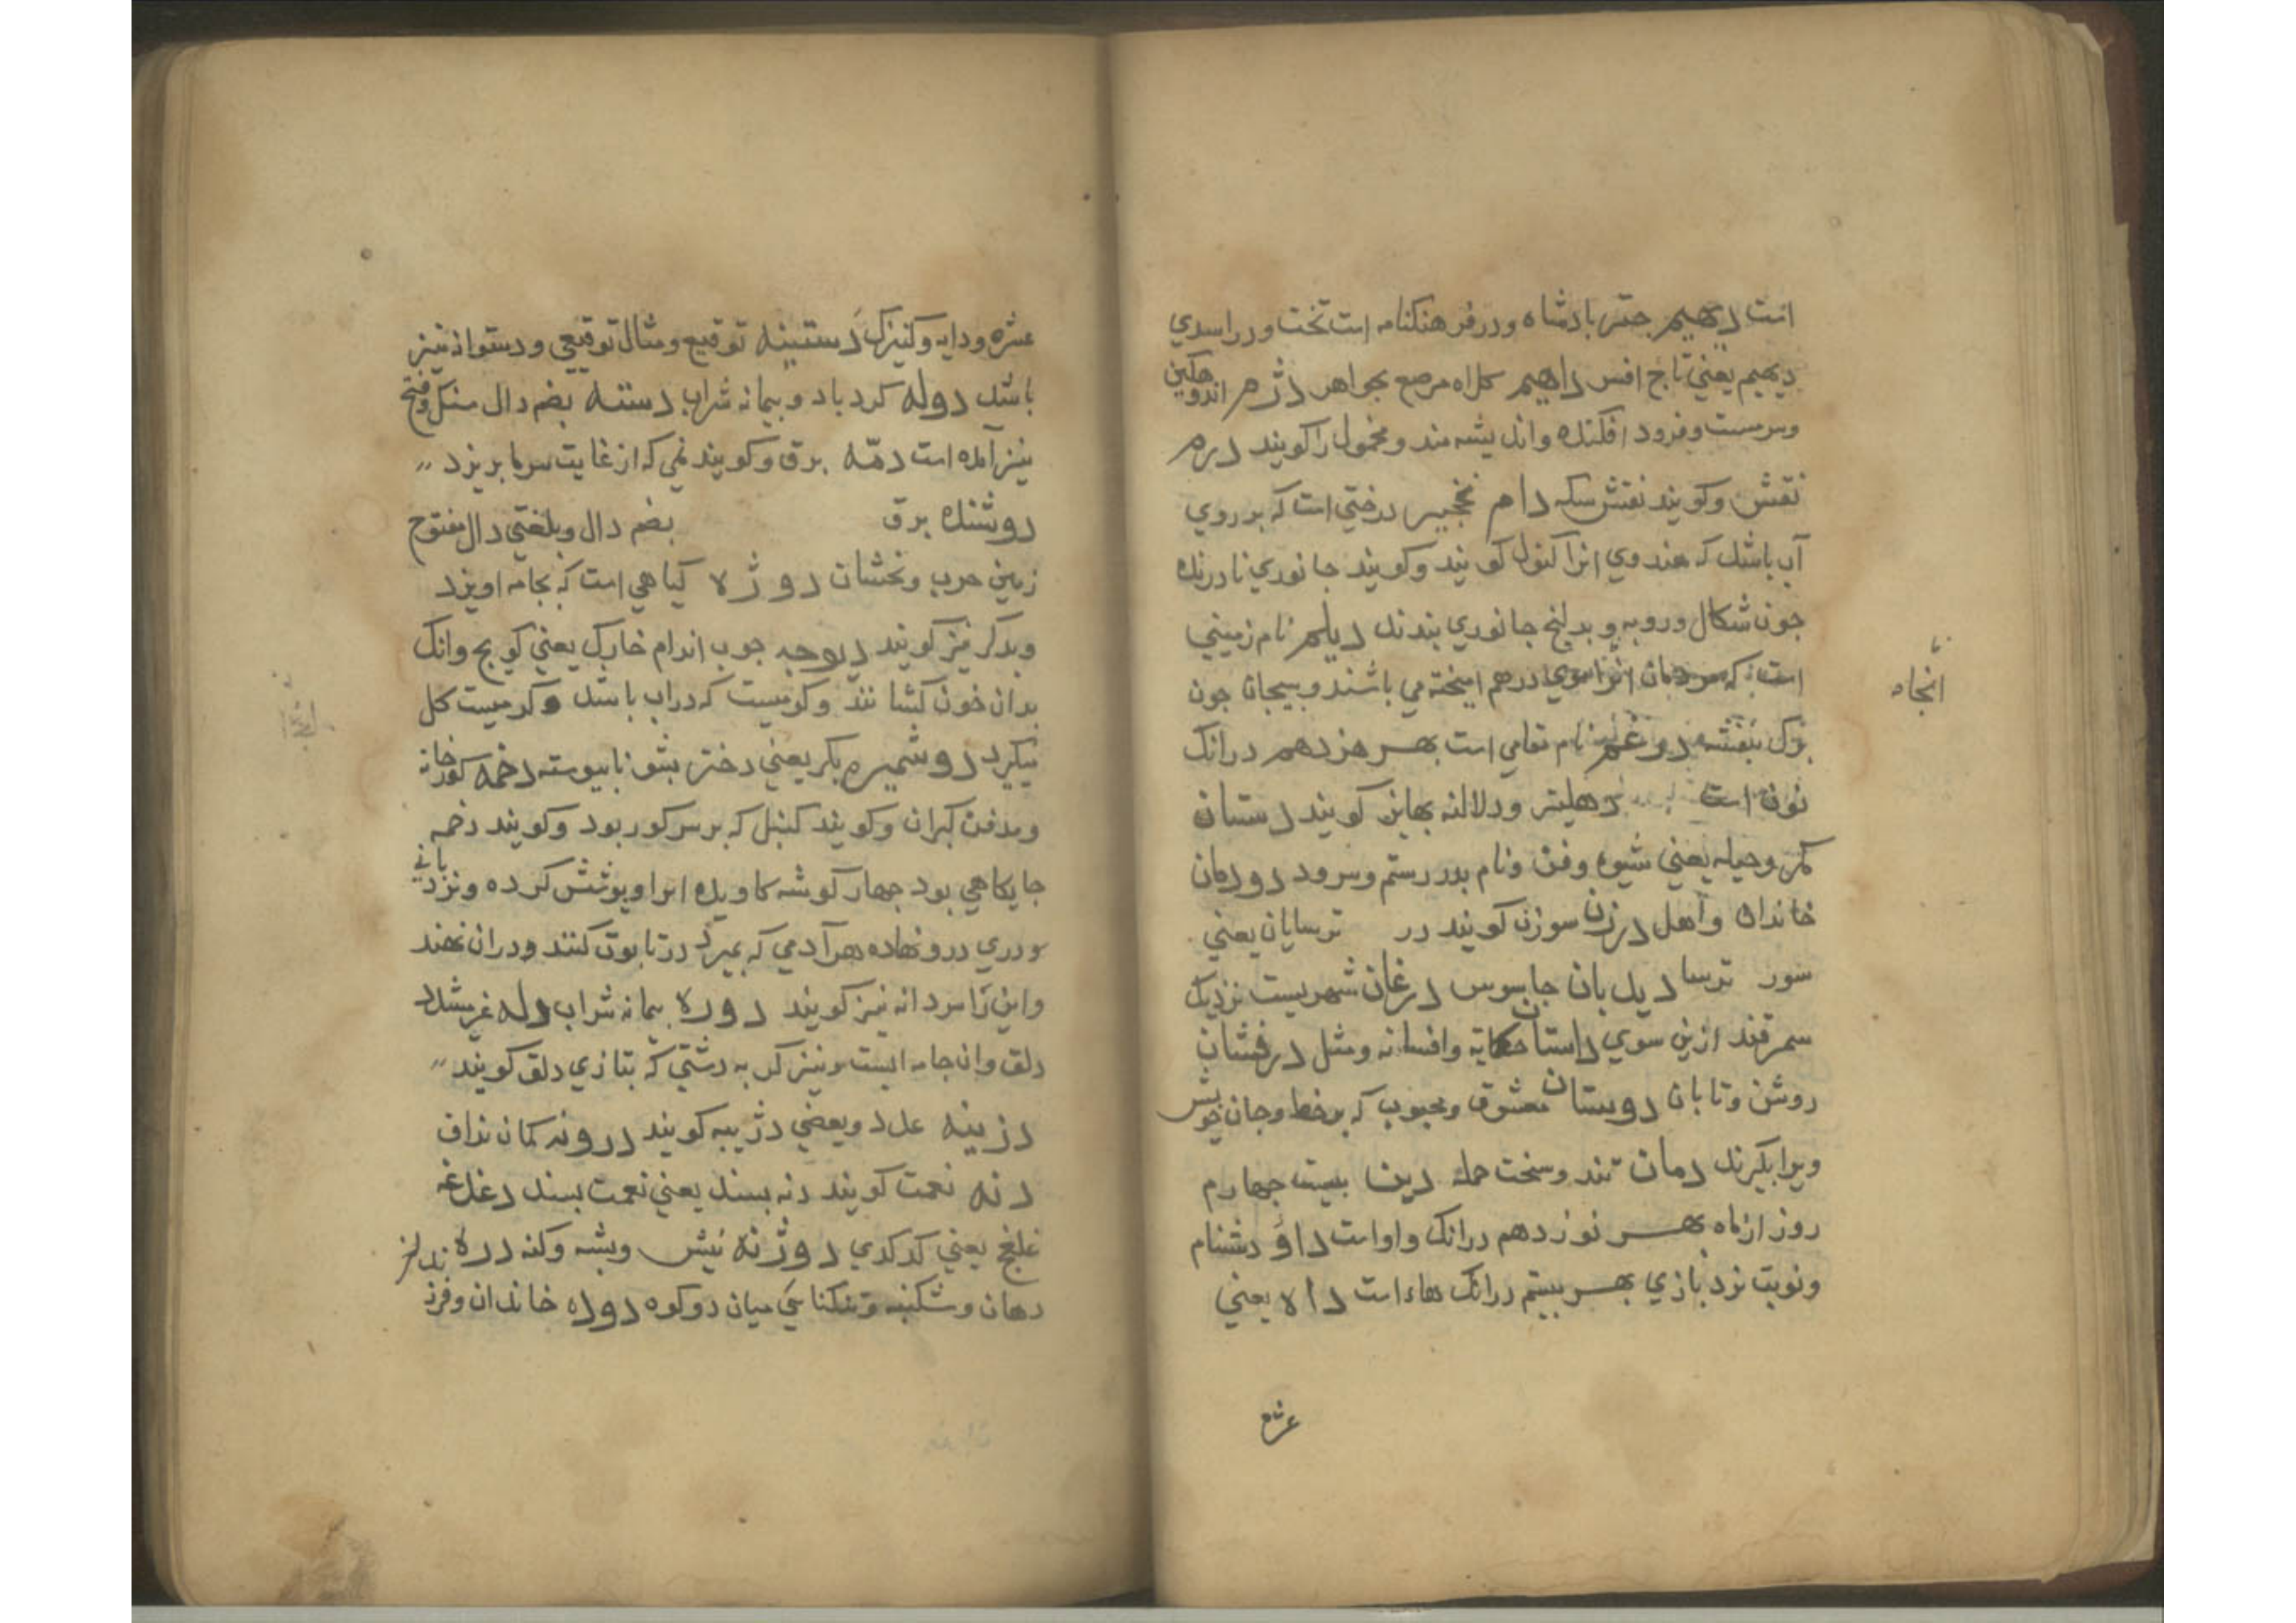 است دیهیم جتر بادشاه ودر فرهنکنامه است تخت ودر اسدي
دیهیم یعني تاج افس داهیم کلاه مرصع بجواهر دژم اندوهکین
وسرمست وفرود افکنده واندیشه مند ومخمول را کویند درم
نقش وکویند نقش سکه دام نخجیر درختي است که بر روي
آب باشد که هندوي انرا کنول کویند وکویند جانوري نادرنده
جون شکال وروبه و جانوري بندند دیلم نام زمیني
است که مردمان انرا موي درهم امیخته مي باشند وبیجان جون
برک بنفشه درغم نام مقامي است بهر هزدهم درانک
نون است دهلیز ودلالنه بهاین کویند دستان
مکر وحیله یعني شیوه وفن ونام بدر رستم وسرود دودمان
خاندان واهل درزن سوزن کویند در ترسایان یعني
سور ترسا دیل بان جاسوس درغان شهریست نزدیک
سمرقند ازین سوي داستان حکایة وافسانه ومثل درفشان
روشن وتابان دوستان معشوق ومحبوب که بر خط وجان خویش
ویرا بکیرند دمان تند وسخت حمله دین بیست جهارم
روز از ماه بهر نوزدهم درانک واو است داو دشنام
ونوبت نرد بازي بهر بیستم درانک هاء است داه یعني
انجاه
عشره
عشره ودایه وکنیزک دستینه توقیع ومثال توقیعي ودستوانه نیز
باشد دوله کردباد وبیمانه شراب دسته بضم دال وفتح
نیز آمده است دمه برق وکویند نمي که از غایت سرما بریزد
دوشنده برق بضم دال وبلغتي دال مفتوح
زمین جرب ونخشان دوژه کیاهي است که بجامه اویزد
وبدکر نیز کویند دیوجه جوب اندام خارک یعني وانک
بدان خون کشانند وکرمیست که دراب باشد وکرمیست کل
میکرد دوشیزه بکر یعني دختر بشو نابیوسته دخمه کورخانه
ومدفن کبران وکویند کنبد که بر سر کور بود وکویند دخمه
جایکاهي بود جهار کوشه کاویده انرا وبوشش کرده ونردباني
ودري درو نهاده هر آدمي که بمیرد در تابوت کنند ودران نهند
واین را سردانه نیز کویند دوره بیمانه شراب دله غیر مشدد
دلق وان جامه ایست ونیز کربه دشتي که بتازي دلق کویند
دزینه عدد وبعضي دژبیه کویند درونه کمان نداف
دنه نعمت کویند دنه بسند یعني نعمت بسند دغدغه
غلغج یعني کدکدي دوژنه نیش وبشه وکنه دره
دهان وشکنبه وتنکنایي میان دو کوه دوده خاندان وفرزندان نیز